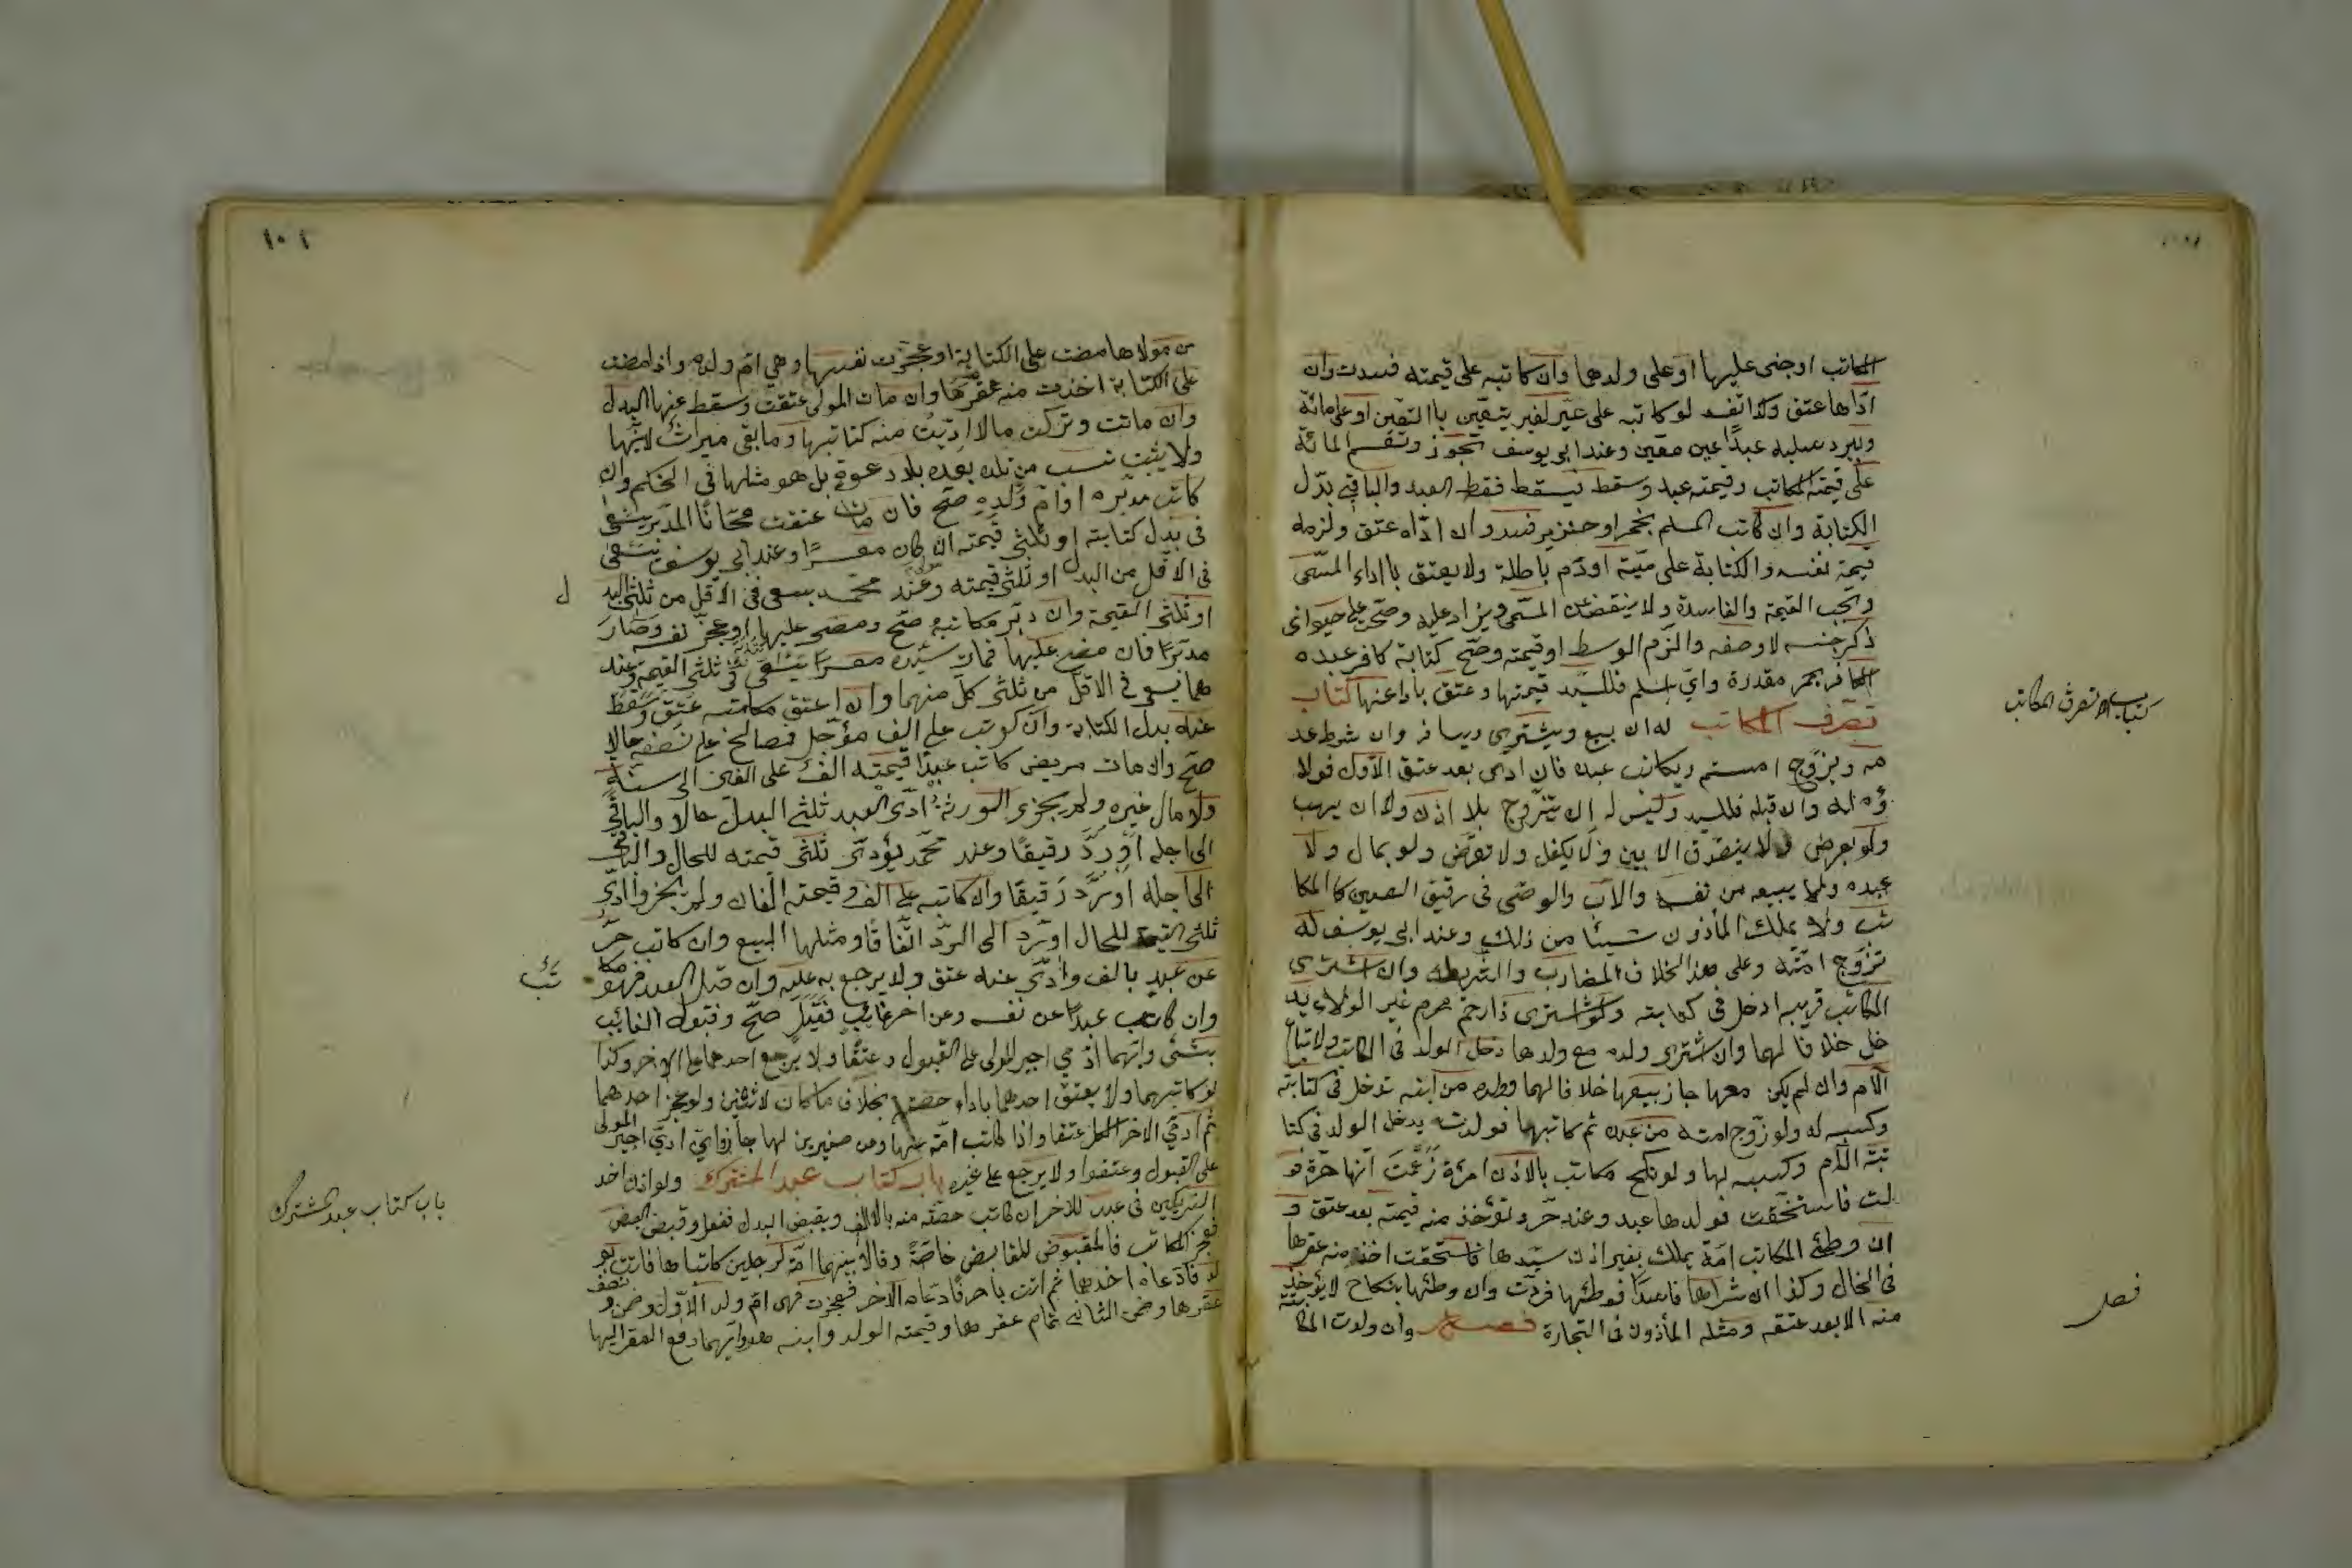 المكاتب او جنى عليها او على ولدها وان كاتبه على قيمته فسدت وان
ادّاها عتق وكذا تفسد لو كاتبه على عين لغير يتعيّن باالتعين او على مائة
ويرد سيده عبدًا غير معين وعند ابى يوسف تجوز وتقسم المائة
على قيمة المكاتب وقيمة عبد وسط فيسقط قسط العبد والباقى بدل
الكتابة وان كاتب المسلم بخمر او خنزير فسد وان ادّاه عتق ولزمه
قيمة نفسه والكتابة على ميتة او دم باطلة ولا يعتق باداء المسمّى
وتجب القيمة والفاسدة ولا ينقص عن المسمّى ويزاد عليه وصحّ على حيوان
ذكر جنسه لا وصفه والزم الوسط او قيمته وصحّ كتابة كافر عبده
الكافر بخمر مقدرة واىّ اسلم فللسيّد قيمتها وعتق باداء عنها كتاب
تصرف المكاتب له ان يبيع ويشترى ويسافر وان شرط عد
مه ويزوّج امته ويكاتب عبده فان ادى بعد عتق الاوّل فولا
ؤه له وان قبله فللسيد وليس له ان يتزوّج بلا اذن ولا ان يهب
ولو بعوض ولا يتصدّق الا بيسير ولا يكفل ولا يقرض ولو بمال ولا
عبده ولا يبيعه من نفسه والاب والوصّى فى رقيق الصغير كالمكا
تب ولا يملك المأذون شيئا من ذلك وعند ابى يوسف له
تزوّج امته وعلى هذا الخلاف المضارب والشريك وان اشترى
المكاتب قريبه ادخل فى كتابته ولو اشترى ذا رحم محرم غير الولاد يد
خل خلافا لهما وان اشترى ولده مع ولدها دخل الولد فى الكتابة ولا تباع
الام وان لم يكن معها جاز بيعها خلافا لهما وولده من امته تدخل فى كتابته
وكسبه له ولو زوّج امته من عبده ثم كاتبهما فولدت يدخل الولد فى كتا
بة الامّ وكسبه لها ولو نكح مكاتب بالاذن امرأة زعمت انها حرّة فو
لدت فاستحقت فولدها عبد وعند محمد حرّ وتؤخذ منه قيمته بعد عتقه و
ان وطئ المكاتب امة بملك بغير اذن سيّدها فاستحقت اخذ منه عقرها
فى الحال وكذا ان شراها فاسدًا فوطئها فردّت وان وطئها بنكاح لا يؤخذ
منه الا بعد عتقه ومثله المأذون فى التجارة فصل وان ولدت المكا
تبة
كتاب تصرف المكاتب
فصل
١٠١
من مولاها مضت على الكتابة او عجزت نفسها وهى امّ ولده واذا مضت
على الكتابة اخذت منه عقرها وان مات المولى عتقت وسقط عنها البدل
وان ماتت وتركت مالا ادّيت منه كتابتها وما بقى ميراث لابنها
ولا يثبت نسب من تلد بعده بلا دعوة بل هو مثلها فى الحكم وان
كاتب مدبّره او امّ ولده صحّ فان مات عتقت مجّانًا المدبّر يسعى
فى بدل كتابته او ثلثى قيمته ان كان معسرًا وعند ابى يوسف يسعى
فى الاقل من البدل او ثلثى قيمته وعند محمد يسعى فى الاقل من ثلثى البد
ل
او ثلثى القيمة وان دبّر مكاتبه صحّ ومضى عليها او عجز نفسه وصار
مدبّرًا فان مضى عليها فمات سيّده معسرًا يسعى فى ثلثى القيمة وعند
هما يسعى فى الاقل من ثلثى كلّ منهما وان اعتق مكاتبه عتق وسقط
عنه بدل الكتابة وان كوتب على الف مؤجّل فصالح على نصفه حالا
صحّ وان مات مريض كاتب عبدًا قيمته الف على الفين الى سنة
ولا مال غيره ولم يجزى الورثة ادّى العبد ثلثى البدل حالا والباقى
الى اجله او ردّ رقيقًا وعند محمّد يؤدى ثلثى قيمته للحال والباقى
الى اجله او يردّ رقيقًا وان كاتبه على الف وقيمته الفان ولم يجزوا ادّى
ثلثى القيمة للحال او يرد الى الردّ اتّفاقًا ومثلها البيع وان كاتب حرّ
عن عبد بالف وادّى عنه عتق ولا يرجع به عليه وان قبل العبد فهو مكا
تب
وان كاتب عبدًا عن نفسه وعن اخر غائب فقبل صحّ وقبول الغائب
بشئ وايّهما ادّى اجبر المولى على القبول وعتقا ولا يرجع احدهما على الاخر وكذا
لو كاتبهما ولا يعتق احدهما باداء حصته بخلاف ما كان لاثنين ولو عجز احدهما
ثم ادّى الاخر الكل عتقا واذا كاتب امة عنها وعن صغيرين لها جاز واىّ ادى اجبر المولى
على القبول وعتقوا ولا يرجع على غيره باب كتاب عبد المشترك ولو اذن احد
الشريكين فى عبد للاخر ان كاتب حصّته منه بالالف ويقبض البدل ففعل وقبض البعض
فعجز المكاتب فالمقبوض للقابض خاصّة وقالا بينهما امة لرجلين كاتباها فاتت بو
لد فادّعاه احدهما ثم اتت باخر فادّعاه الاخر فعجزت فهى امّ ولد الاوّل وضمن نصف
عقرها وضمن الثانى تمام عقرها وقيمة الولد وابنه وايّهما دفع العقر اليها
باب كتاب عبد المشترك